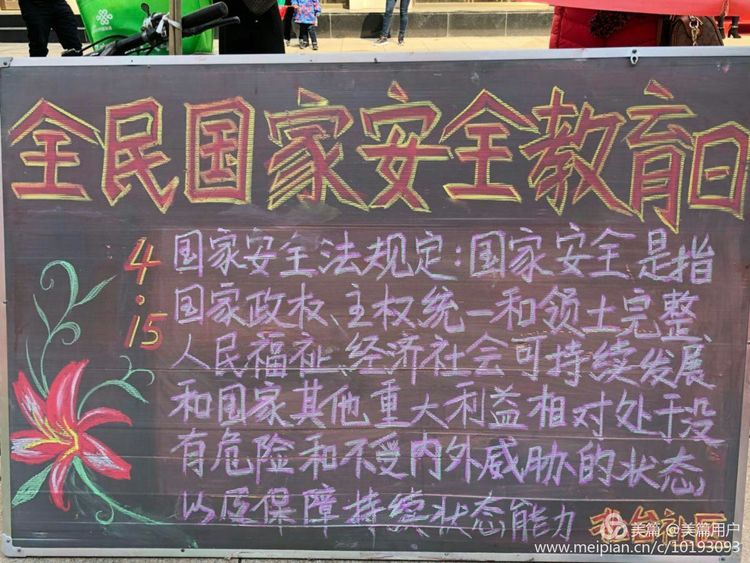 全民国家安全教育日
4.15
国家安全法规定:国家安全是指
国家政权、主权统一和领土完整、
人民福祉、经济社会可持续发展
和国家其他重大利益相对处于没
有危险和不受内外威胁的状态,
以及保障持续状态能力
社区
美篇 @美篇用户
www.meipian.cn/c/10193093